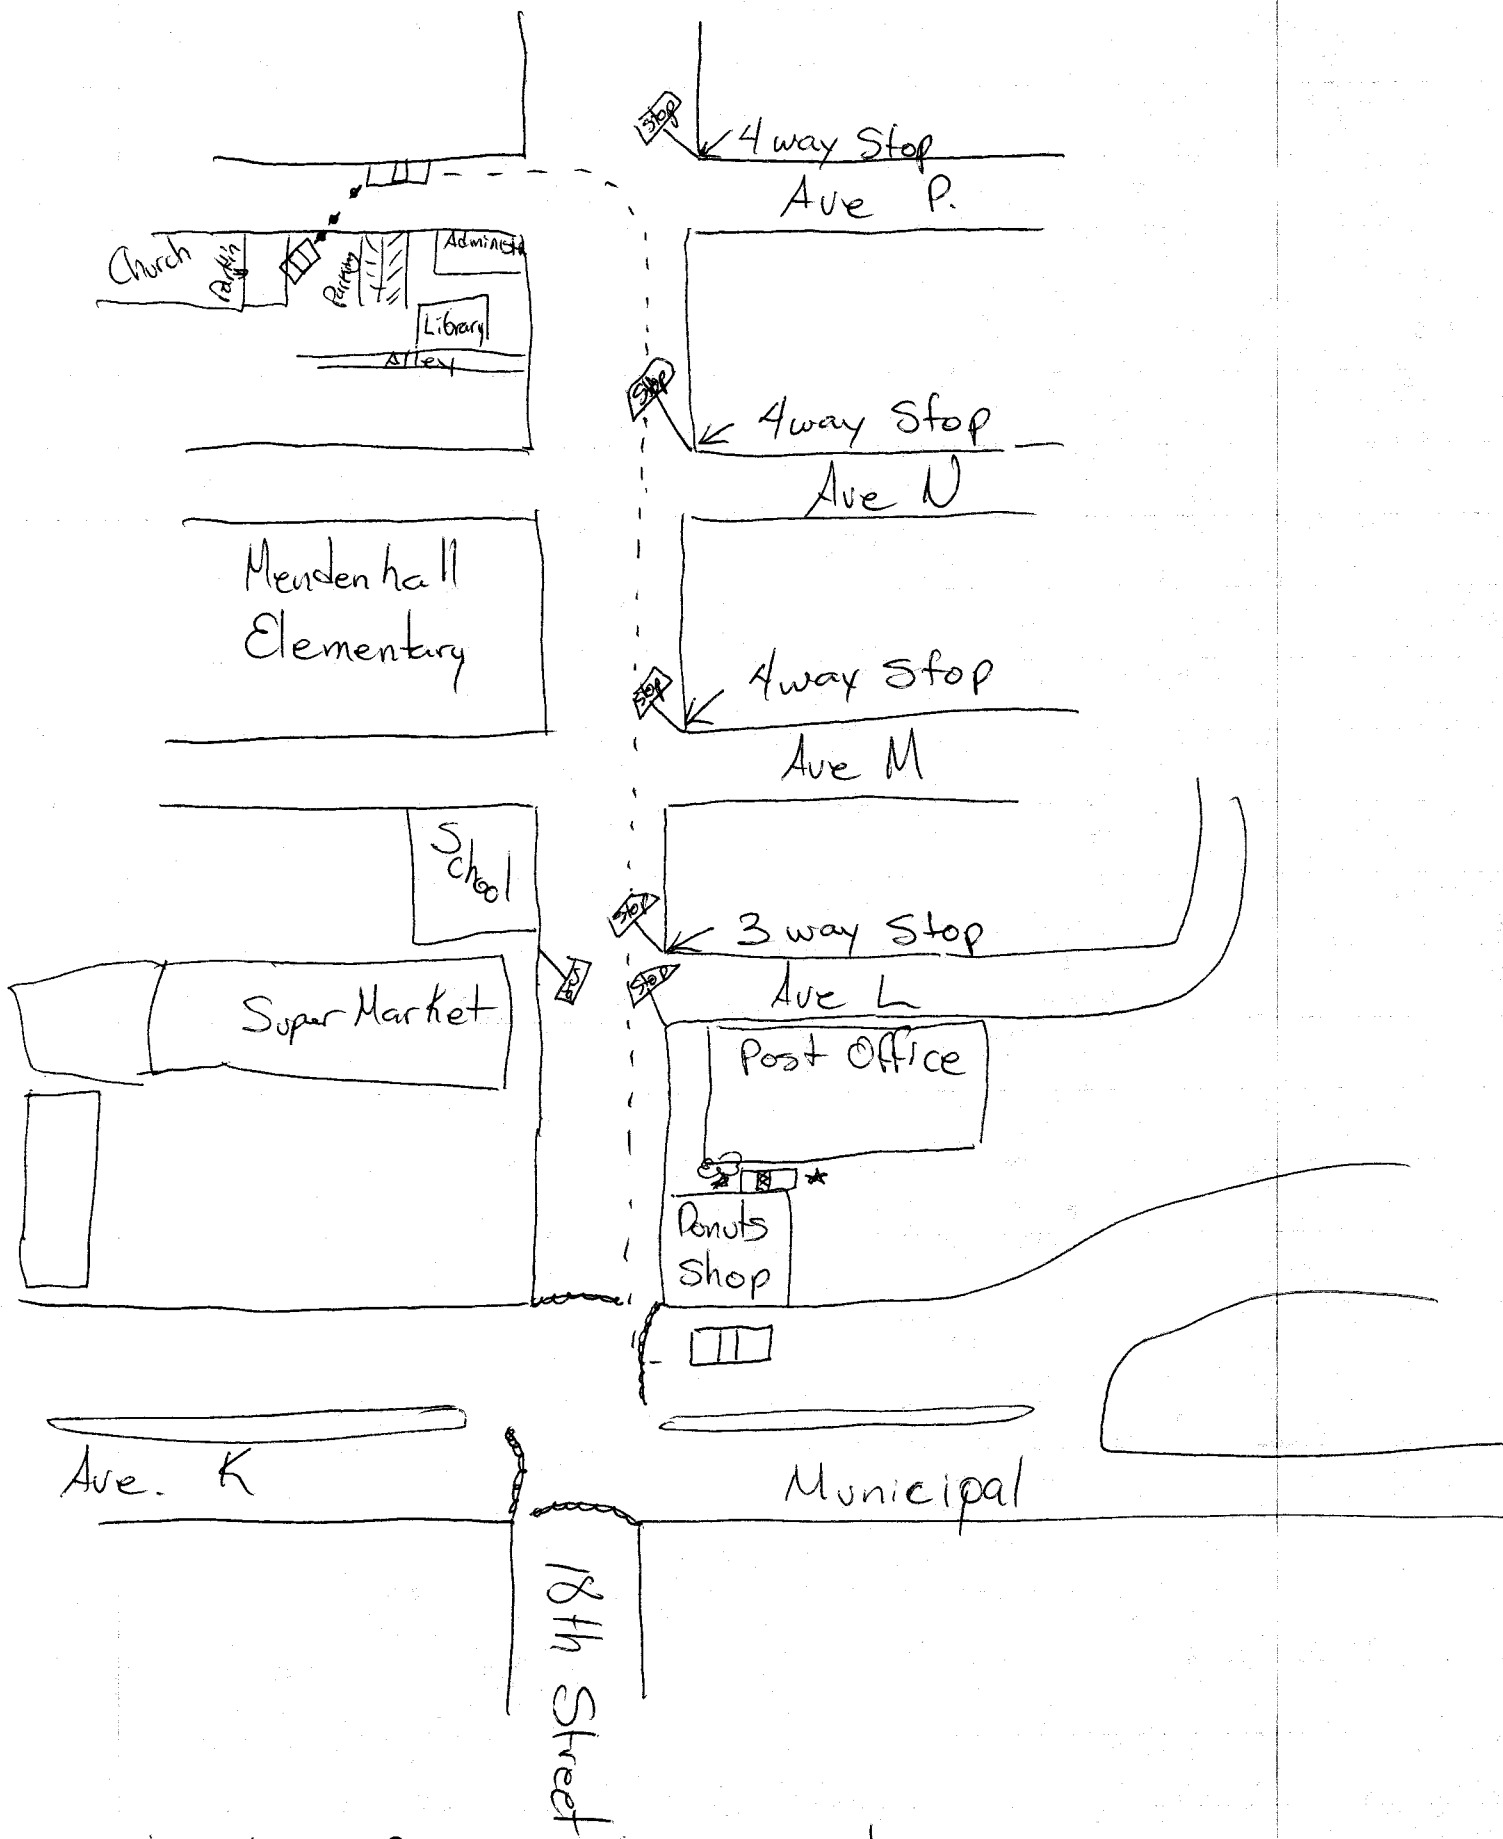 Stop
4 way Stop
Ave P.
Church
Parkin
Parking
Administ
Library
Alley
Stop
4 way Stop
Ave N
Mendenhall
Elementary
Stop
4 way Stop
Ave M
School
Stop
3 way Stop
Stop
Stop
Ave L
Super Market
Post Office
Donuts
Shop
Ave. K
Municipal
18th Street